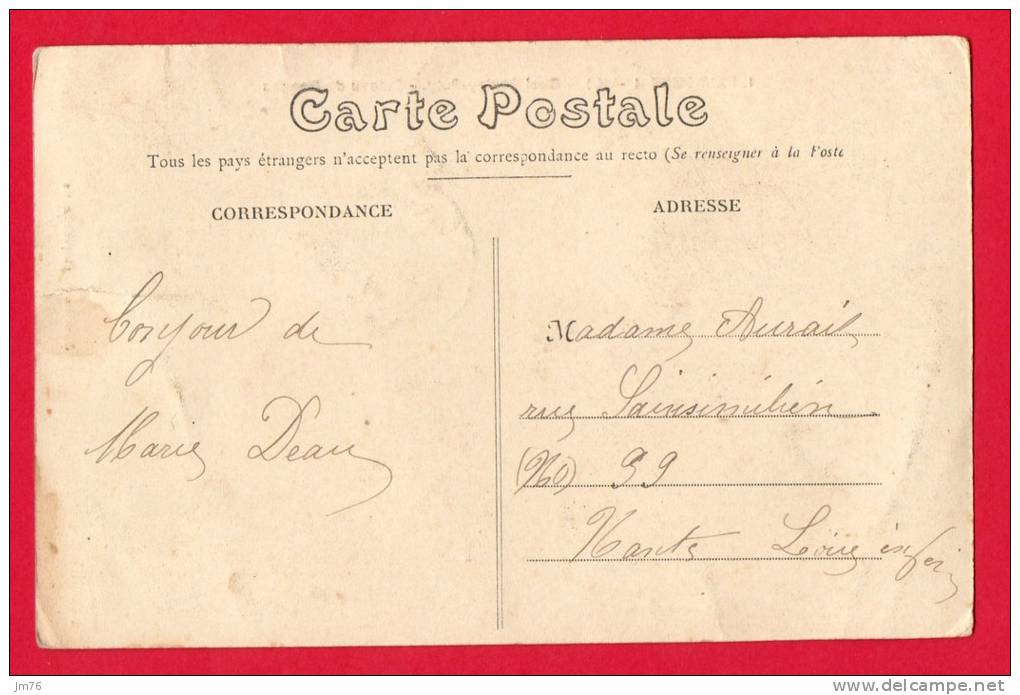 Carte Postale
Tous les pays étrangers n'acceptent pas la correspondance au recto (Se renseigner à la Poste
CORRESPONDANCE
ADRESSE
Bonjour de
Marie Deau
Madame Aurail
rue Sainsimilien
(No) 99
Nants Loire infer
jm76
www.delcampe.net